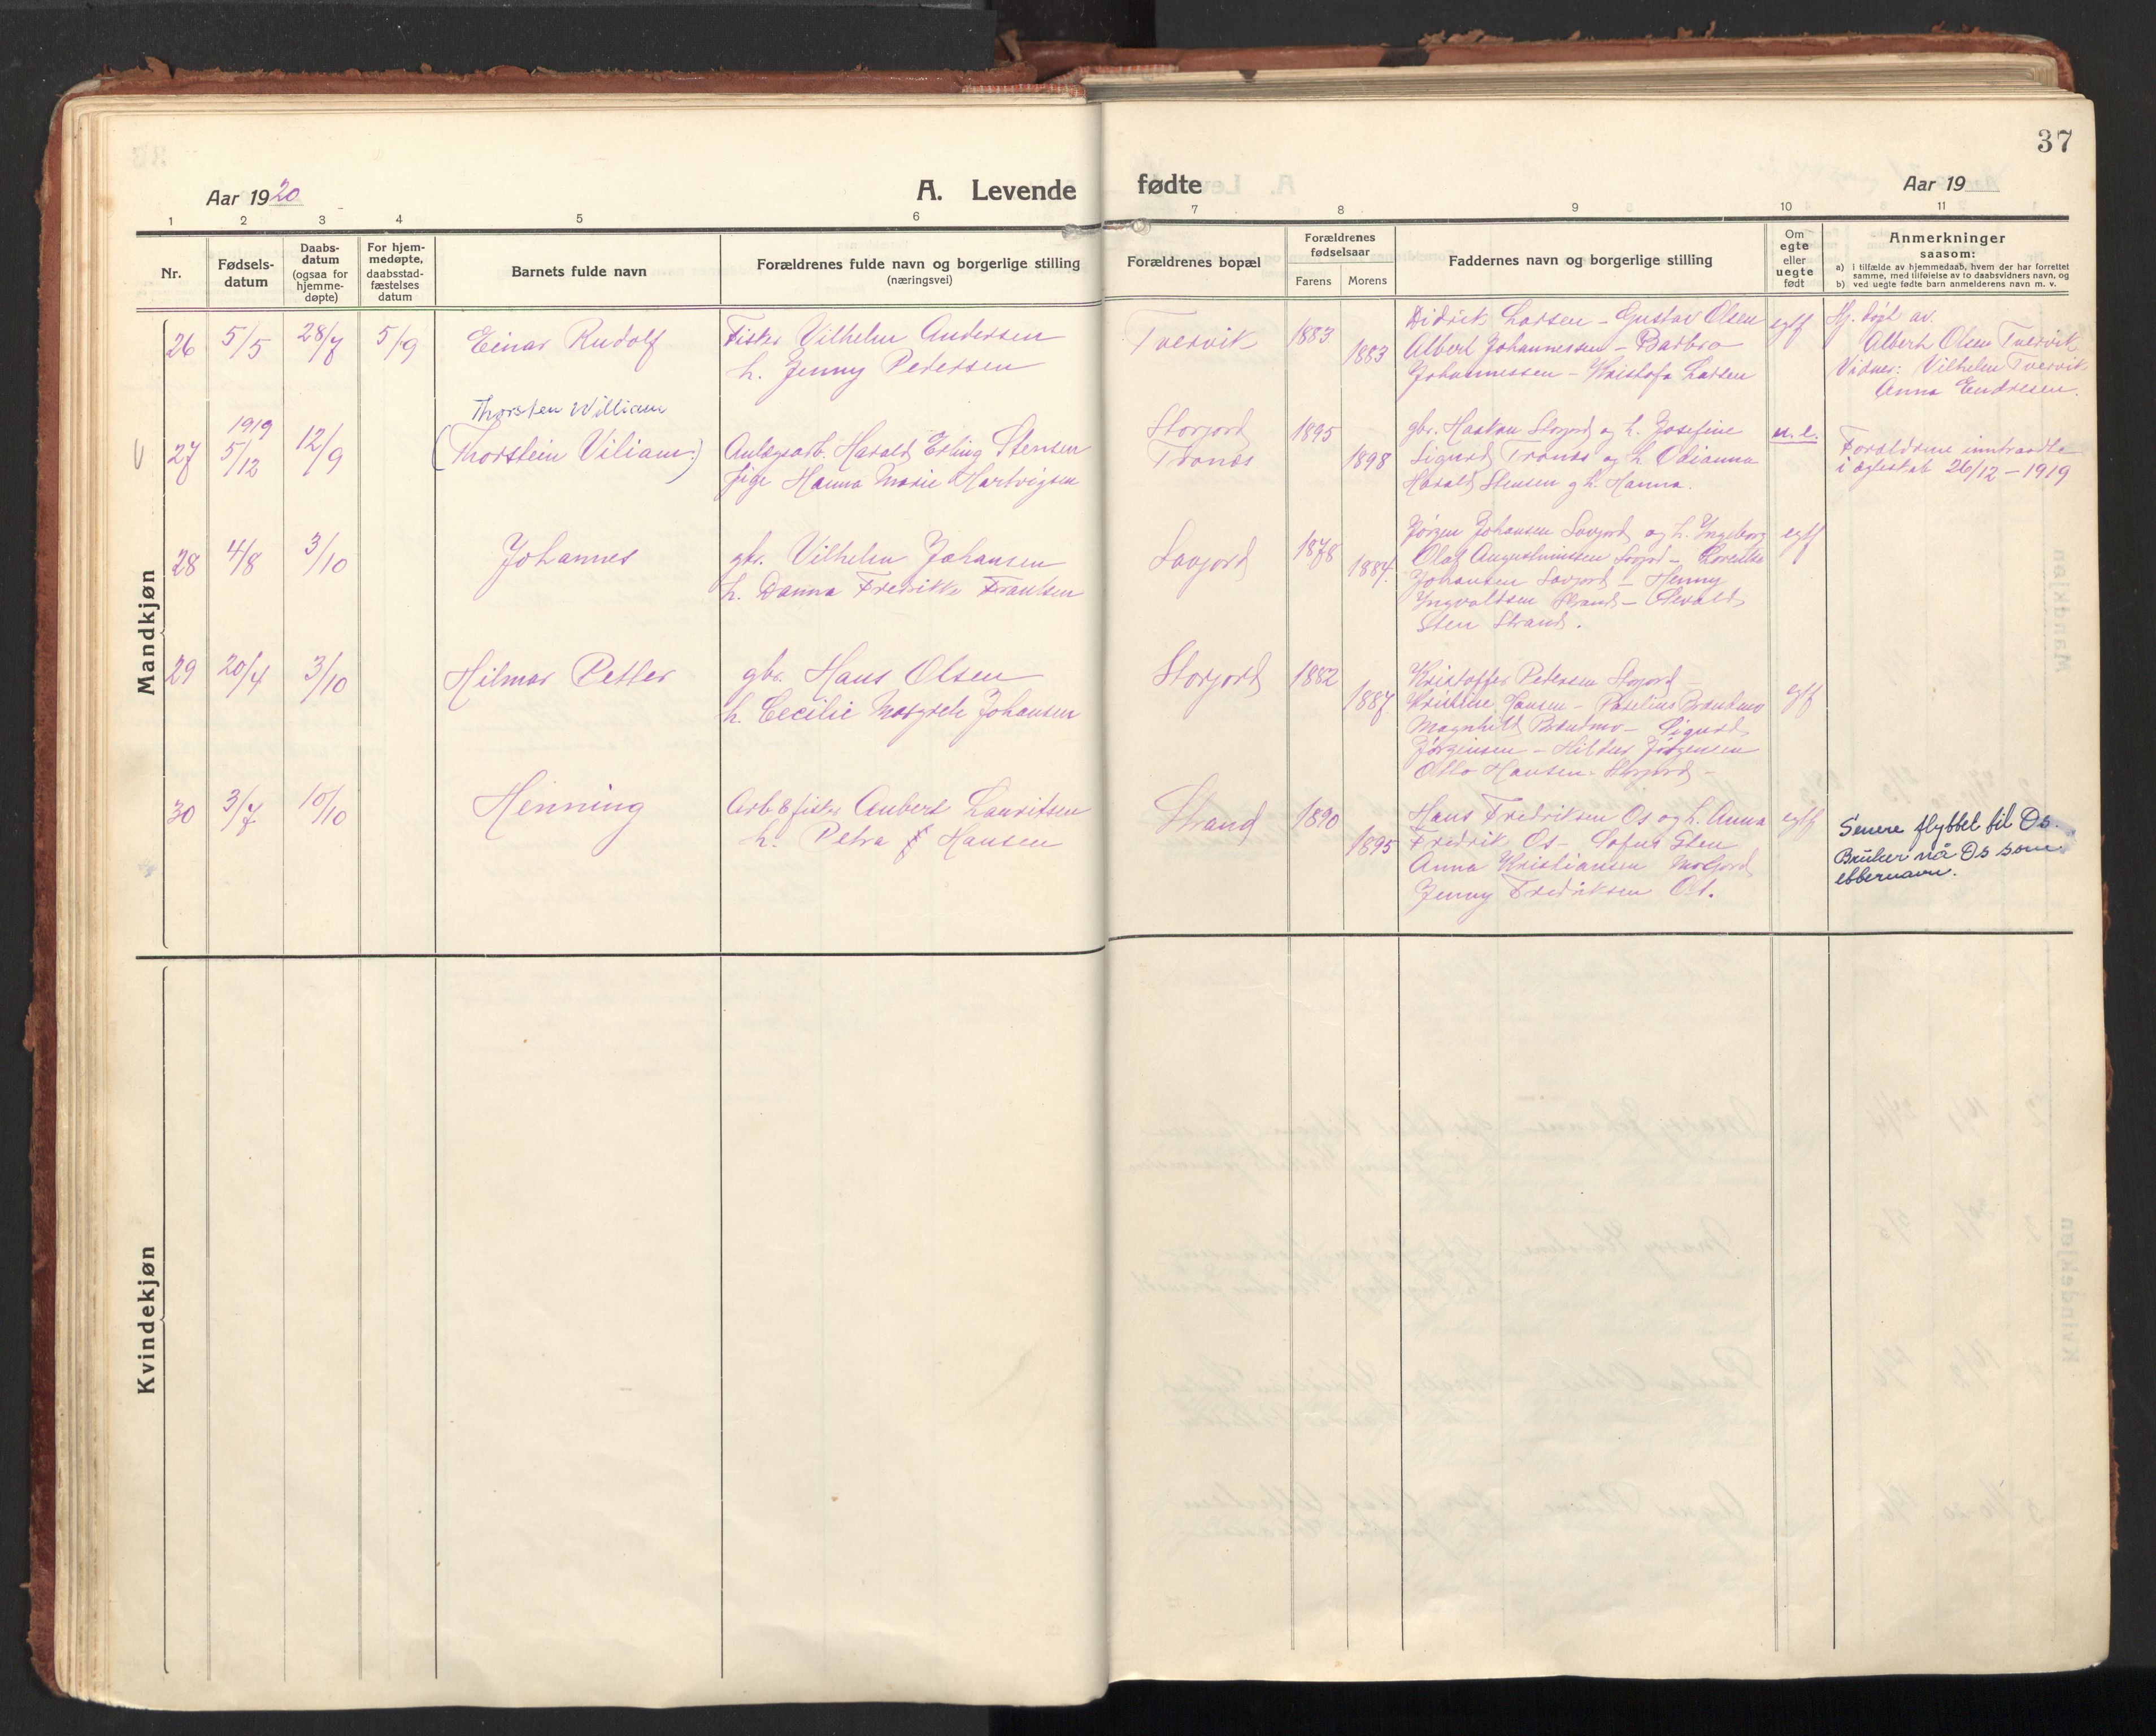 37
Aar 1920
A. Levende fødte
Aar 19
1 2 3 4 5 6 7 8 9 10 11
Nr.
Fødsels-
datum
Daabs-
datum
(ogsaa for
hjemme-
døpte)
For hjem-
medøpte,
daabsstad-
fæstelses
datum
Barnets fulde navn
Forældrenes fulde navn og borgerlige stilling
(næringsvei)
Forældrenes bopæl
Forældrenes
fødselsaar
Farens
Morens
Faddernes navn og borgerlige stilling
Om
egte
eller
uegte
født
Anmerkninger
saasom:
a) i tilfælde av hjemmedaab, hvem der har forrettet
samme, med tilføielse av to daabsvidners navn, og
b) ved uegte fødte barn anmelderens navn m. v.
Mandkjøn
26 5/5 28/7 5/9 Einar Rudolf
Fisker Vilhelm Andersen
h. Jenny Pedersen
Tvervik 1883 1883
Didrik Larsen - Gustav Olsen
Albert Johannessen - Barbro
Johannessen - Kristofa Larsen
egtf
Hj. døpt av
Albert Olsen Tvervik
Vidner: Vilhelm Tvervik
Anna Endresen.
27 1919 5/12 12/9
Thorsten William
(Thorstein Viliam)
Anlægsarb. Harald Erling Stensen
Pige Hanna Marie Hartvigsen
Storjord
Tranes
1895 1898
gbr. Haakon Storjord og h. Josefine
Sigurd Tranes og h. Odianna
Harald Stensen og h. Hanna.
u.e.
Foreldrene inntraadte
i ægteskab 26/12 - 1919
28 4/8 3/10 Johannes
gbr. Vilhelm Johansen
h. Danna Fredrikke Frantsen
Savjord 1878 1884
Jørgen Johansen Savjord og h. Ingeborg
Olaf Augustinussen
Johansen Savjord - Henny
Ingvaldsen Strand -
Sten Strand.
egtf
29 20/4 3/10 Hilmar Petter
gbr. Hans Olsen
h. Cecilie Margrete Johansen
Storjord 1882 1887
Kristoffer Petersen Storjord -
Kristine Hansen -
Magnhild - Sigurd
Jørgensen - Hildur Jørgensen
Otto Hansen Storjord -
egtf
30 3/7 10/10 Henning
Arb & fisker Anbert Lauritsen
h. Petra Hansen
Strand 1890 1895
Hans Fredriksen Os og h. Anna
Fredrik Os - Sofus Sten
Anna Kristiansen
Jenny Fredriksen Os.
egtf
Senere flyttet til Os.
Bruker nå Os som
etternavn.
Kvindekjøn